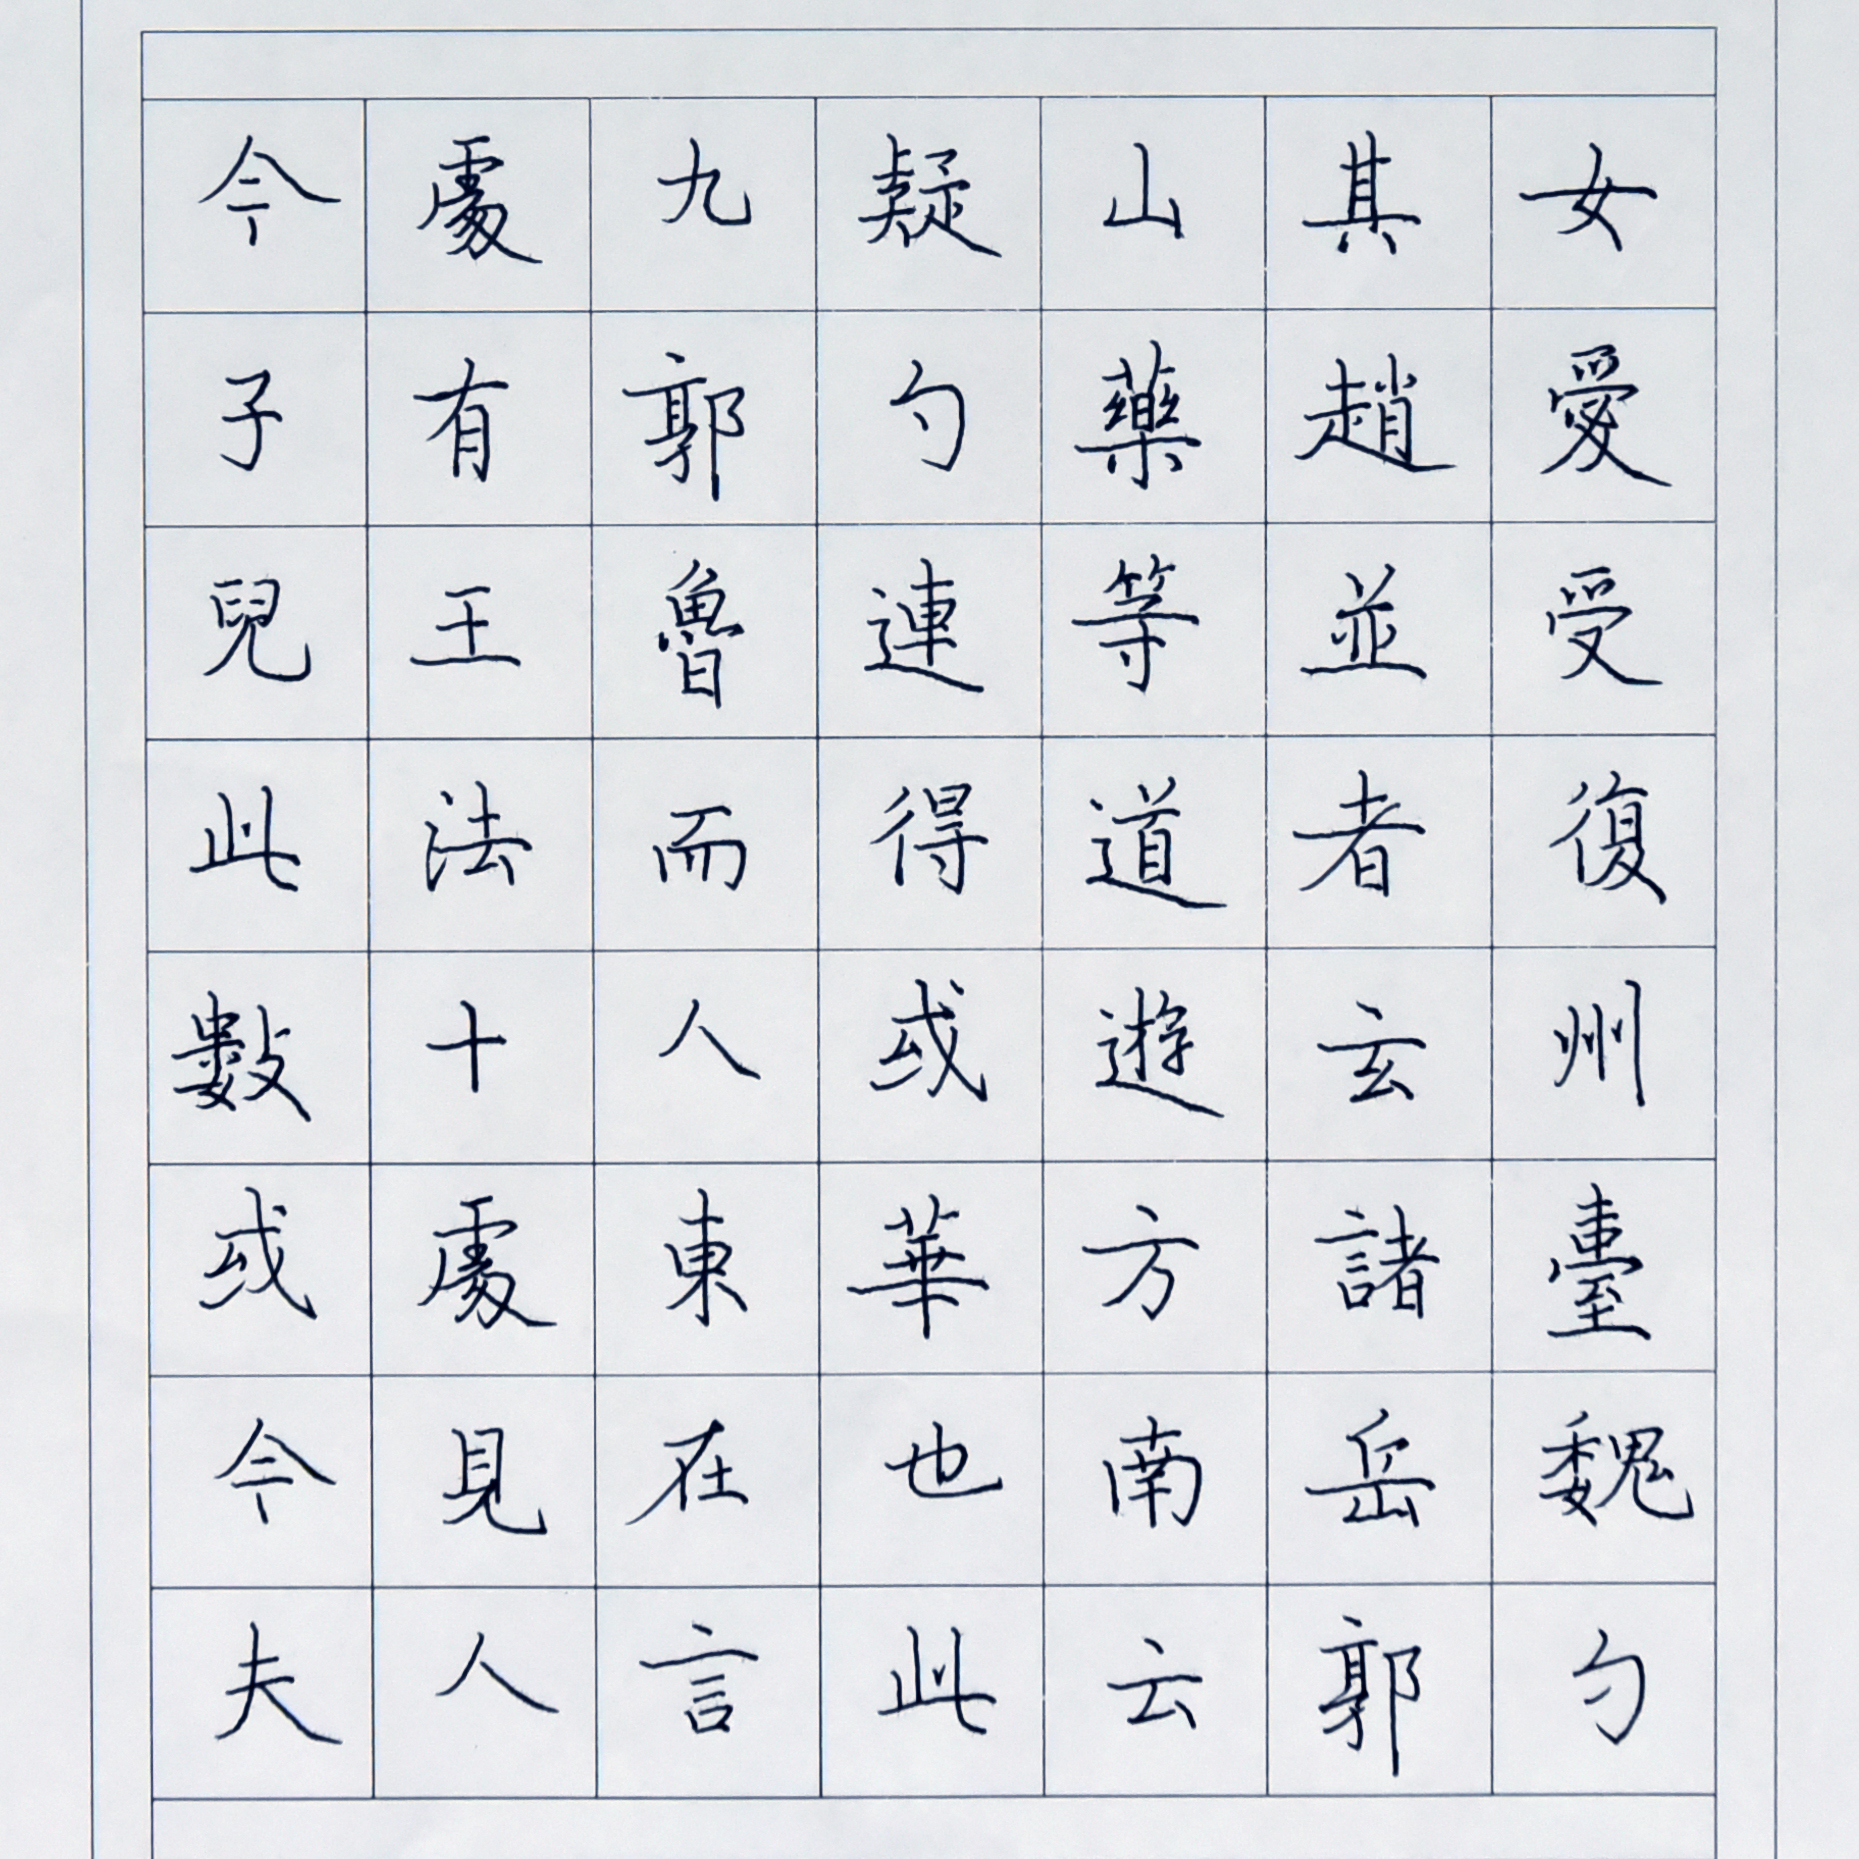 今處九疑山其女
子有郭勺藥趙愛
兒王魯連等並受
此法而得道者復
數十人或遊玄州
或處東華方諸臺
今見在也南岳魏
夫人言此云郭勺